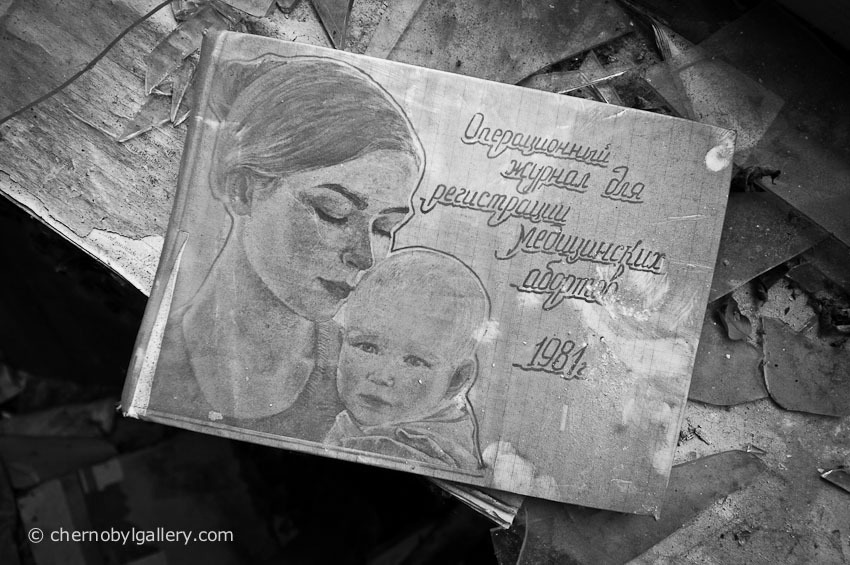 Операционный
журнал для
регистрации
медицинских
абортов
1981г
© chernobylgallery.com